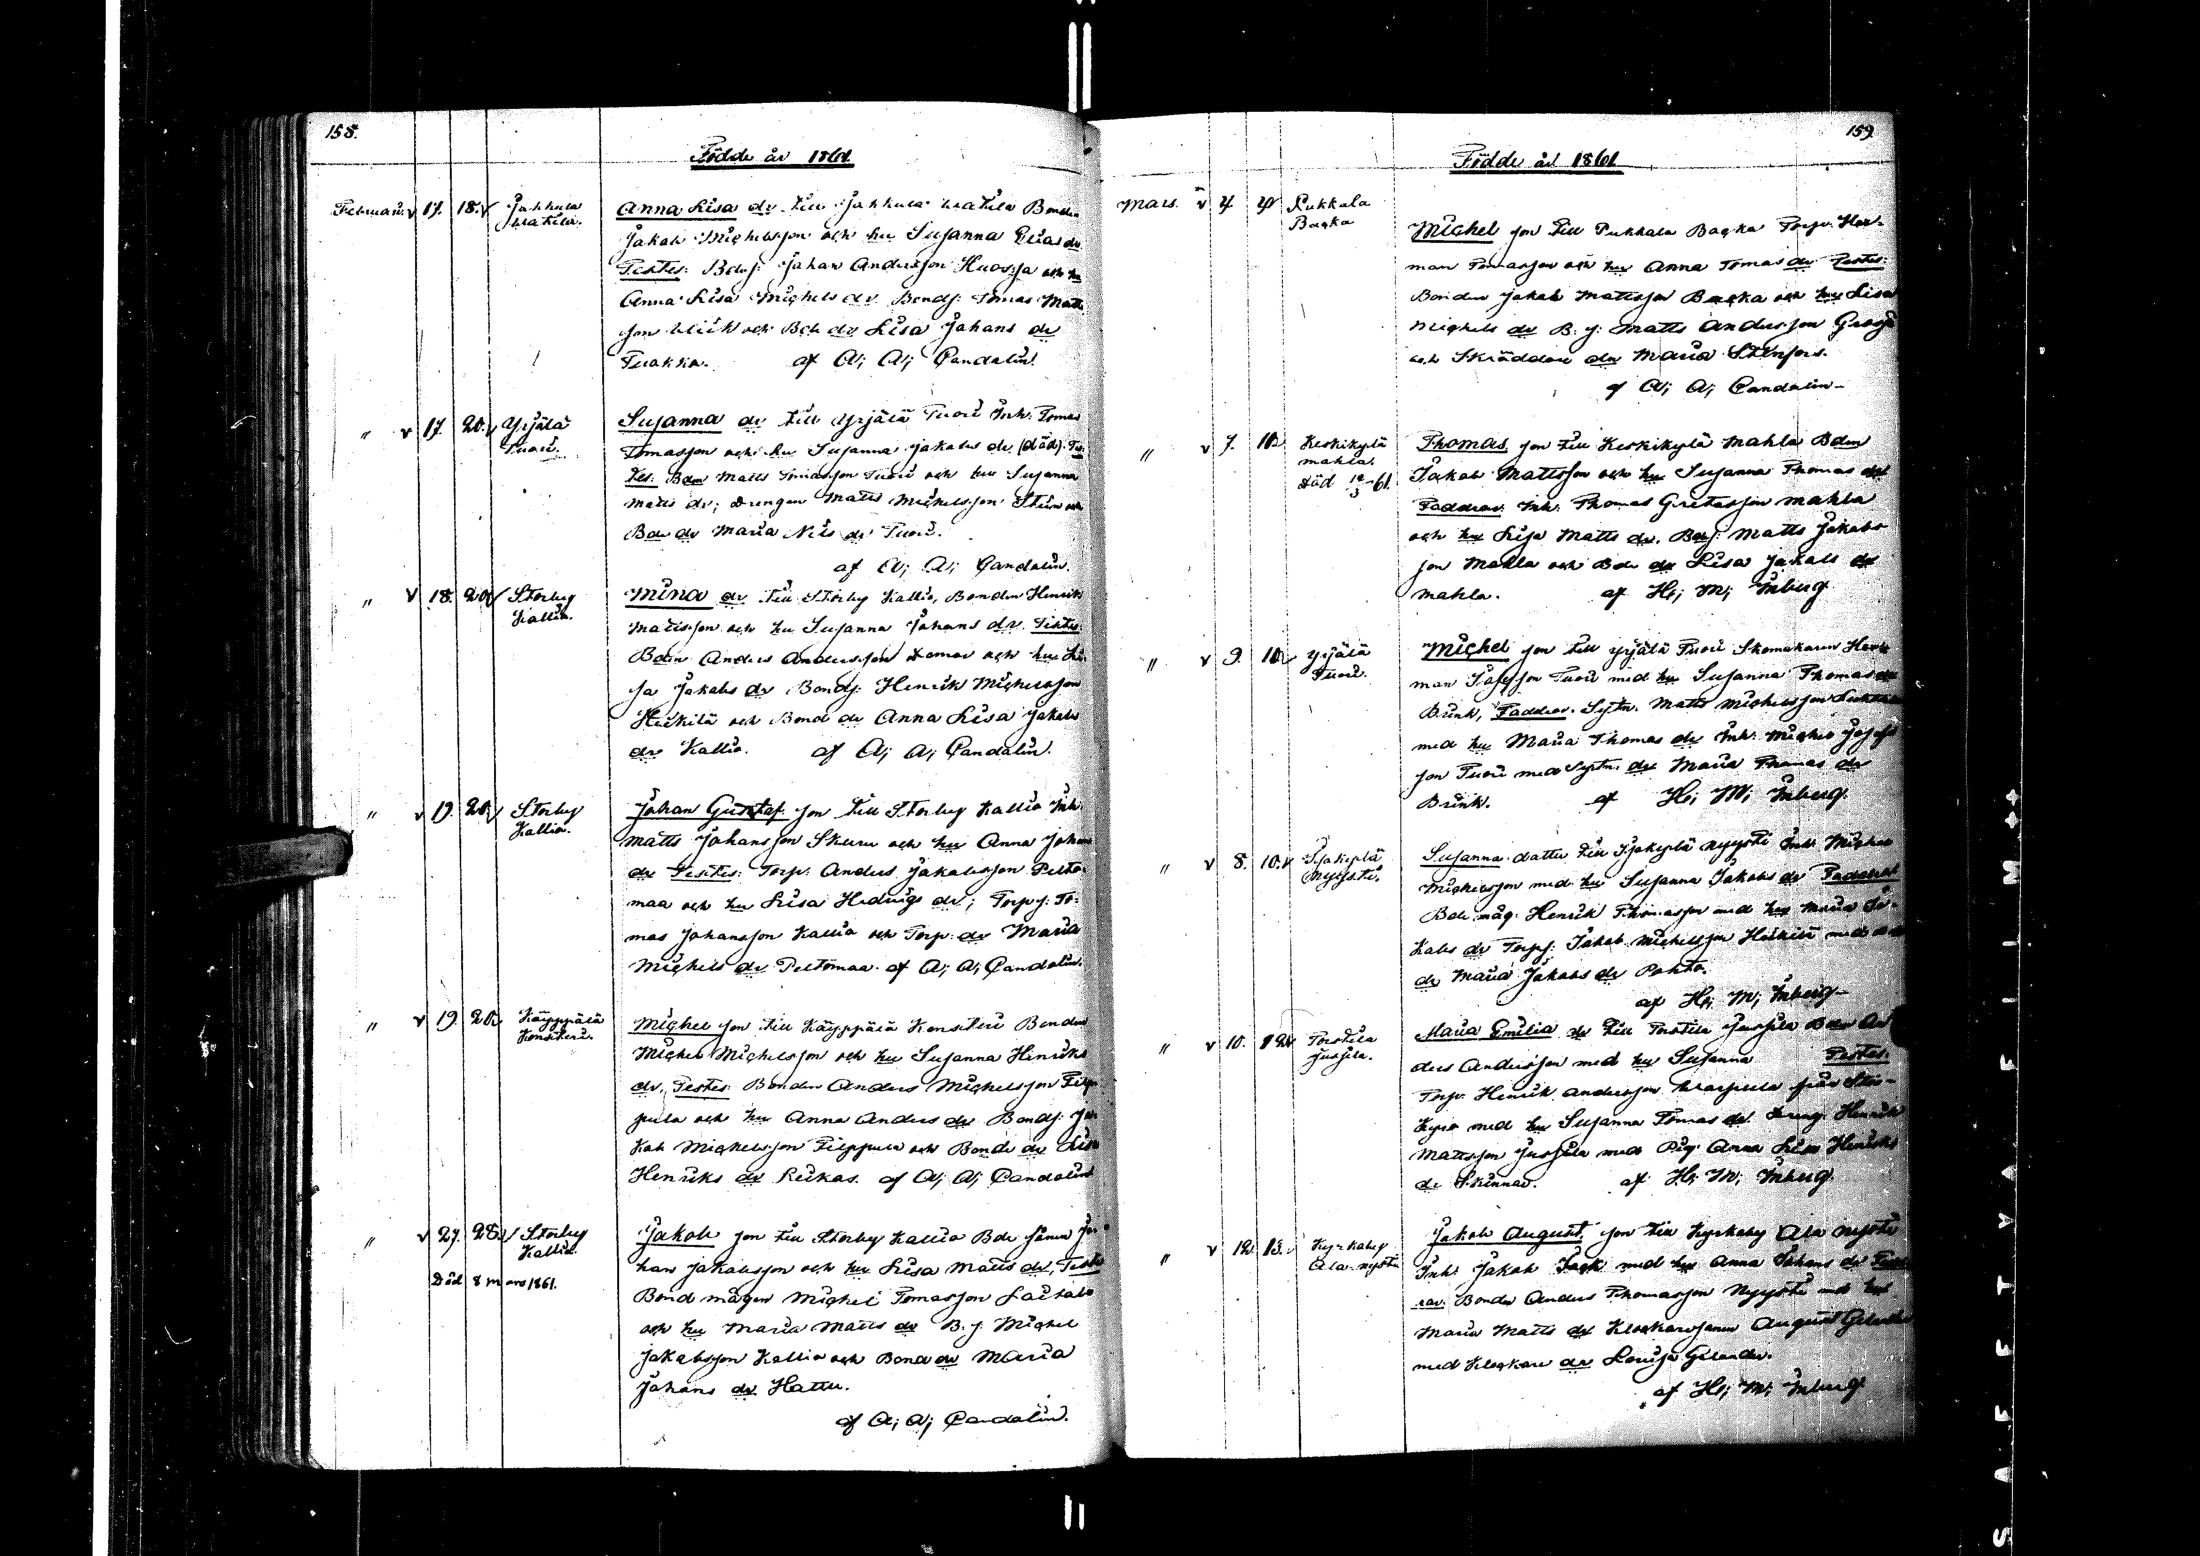 158.
Födde år 1861
Februari v 17. 18. v Jahkula
Anna Lisa dr till Jahkula Bonden
Jakob Michelsson och hu Susanna Elias dr
Testes: Bdsj: Johan Andersson Huosja och hu
Anna Lisa Michels dr Bondj: Tomas Matts
son och Bde dr Lisa Johans dr
af A; A; Candolin.
" v 17. 20. v Yrjälä
Tuori.
Susanna dr till Yrjälä Tuori Inh: Tomas
Tomasson och hu Susanna Jakobs dr (död). Tes
tes: Bdn Matts Tomasson Tuori och hu Susanna
Matts dr; Drengen Matts Michelsson och
Bde dr Maria Nils dr Tuori.
af A; A; Candolin.
" v 18. 20. v Storby
Kallio.
Mina dr till Storby Kallio, Bonden Henrik
Mattsson och hu Susanna Johans dr. Testes:
Bdn Anders Andersson och hu Li
sa Jakobs dr Bondj: Henrik Michelsson
Heikilä och Bond dr Anna Lisa Jakobs
dr Kallio. af A; A; Candolin.
" v 19. 20. v Storby
Kallio.
Johan Gustaf son till Storby Kallio Inh:
Matts Johansson Skuru och hu Anna Johans
dr Testes: Torp: Anders Jakobsson Pelto-
maa och hu Lisa Hedvigs dr; Torpj: To-
mas Johansson Kallio och Torp: dr Maria
Michels dr Peltomaa. af A; A; Candolin.
" v 19. 20. v Käyppälä
Konsteri.
Michel son till Käyppälä Konsteri Bonden
Michel Michelsson och hu Susanna Henriks
dr, Testes: Bonden Anders Michelsson Filp
pula och hu Anna Anders dr Bondj: Ja
kob Michelsson Filppula och Bonde dr Lisa
Henriks dr Leikas. af A; A; Candolin
" v 27. 28. v Storby
Kallio
Död 8 mars 1861.
Jakob son till Storby Kallio Bde Jo
hans Jakobsson och hu Lisa Matts dr, Teste
Bond mågen Michel Tomasson
och hu Maria Matts dr B. s. Michel
Jakobsson Kallio och Bond dr Maria
Johans dr Hattu.
af A; A; Candolin.
159.
Födde år 1861
Mars. v 4. 4. Pukkala
Backa
Michel son till Pukkala Backa Torp: Her-
man Tomasson och hu Anna Tomas dr Testes:
Bonden Jakob Mattsson Backa och hu Lisa
Michels dr B. s. Matts Andersson
och Skräddare dr Maria Stenfors.
af A; A; Candolin
" v 7. 10. Keskikylä
Mahla.
död 12/3 61.
Thomas son till Keskikylä Mahla Bdn
Jakob Mattsson och hu Susanna Thomas dr
Faddrar: Inh: Thomas Gretasson Mahla
och hu Lisa Matts dr. Bdsj: Matts Jakobs
son Mahla och Bde dr Lisa Jakobs dr
Mahla. af H; M; Inberg.
" v 9. 10. v Yrjälä
Tuori.
Michel son till Yrjälä Tuori Skomakaren Her
man Tuori med hu Susanna Thomas dr
Brink, Faddrar: Sytn. Matts Michelsson
med hu Maria Thomas dr Inh: Michel Josefs
son Tuori med Sytn: dr Maria Thomas dr
Brink. af H; M; Inberg.
" v 8. 10. v Sjökylä
Nyysti.
Susanna datter till Sjökylä Nyysti Inh: Michel
Michelsson med hu Susanna Jakobs dr Faddrar
Bde måg: Henrik Thomasson med hu Maria Ja-
kobs dr Torpj: Jakob Michelsson Heikilä med
dr Maria Jakobs dr Pohto.
af H; M; Inberg
" v 10. 12. v Torttila
Jussila.
Maria Emilia dr till Torttila Jussila Bdn An
ders Andersson med hu Susanna Testes:
Torp: Henrik Andersson från Stor-
kyro med hu Susanna Tomas dr Dreng: Henrik
Mattsson Jussila med Pig: Anna Lisa Henriks
dr Skinnar. af H; M; Inberg.
" v 12. 13. v Kyrkoby
Ala-nysti
Jakob August. son till Kyrkoby Ala Nysti
Inh: Jakob med hu Anna Johans dr Fadd
rar: Bonden Anders Thomasson Nyysti med hu
Maria Matts dr Klockaresonen August Gelander
med Klockare dr Lovisa Gelander.
af H; M; Inberg